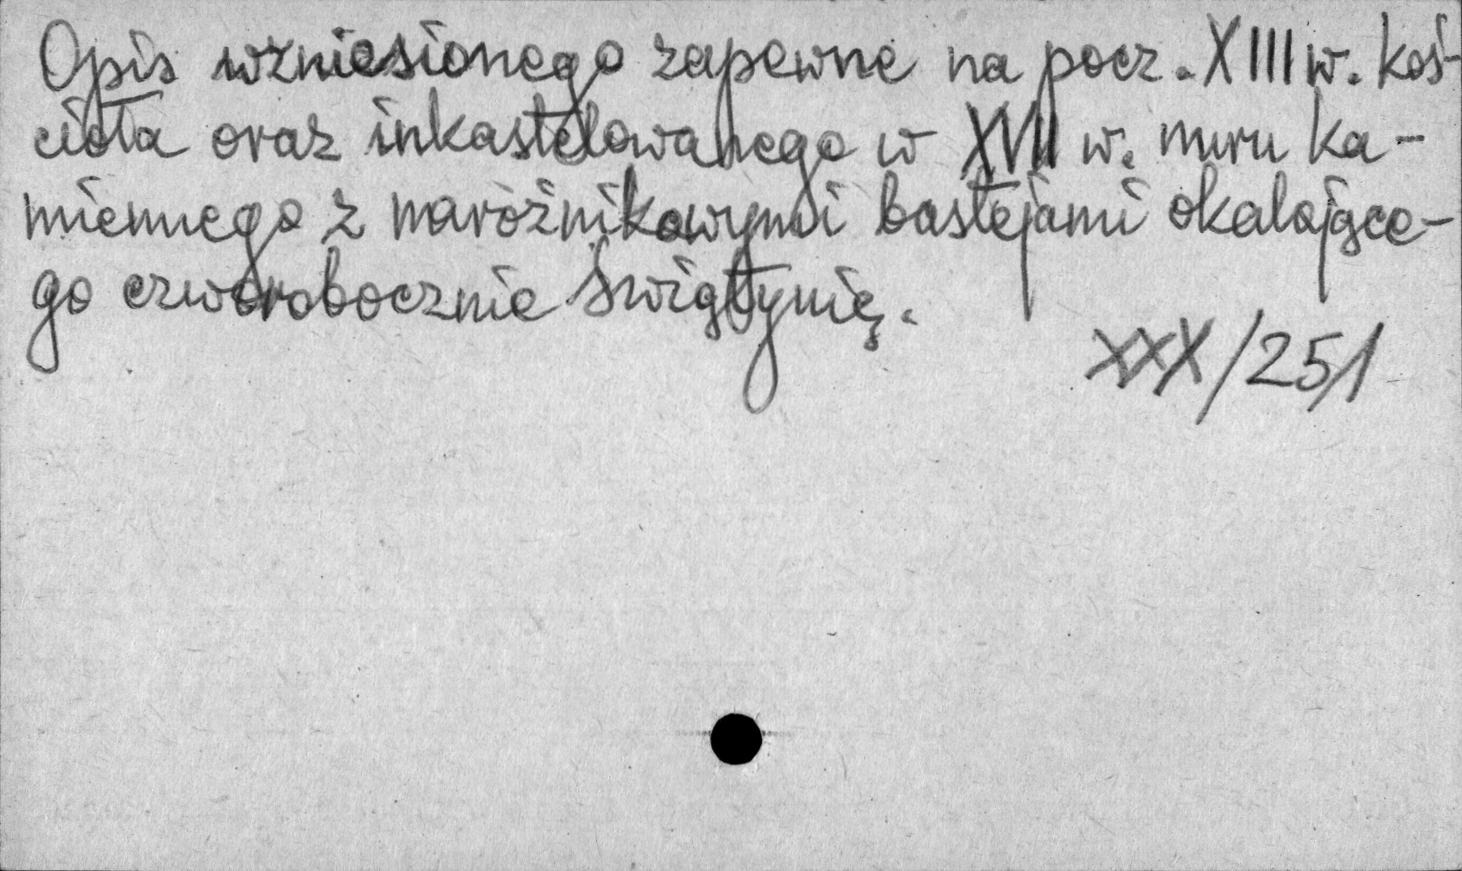 Opis wzniesionego zapewne na pocz. XIII w. koś-
cioła oraz inkastelowanego w XVII w. muru ka-
miennego z narożnikowymi bastejami okalające-
go czworobocznie świątynię.
XXX/251